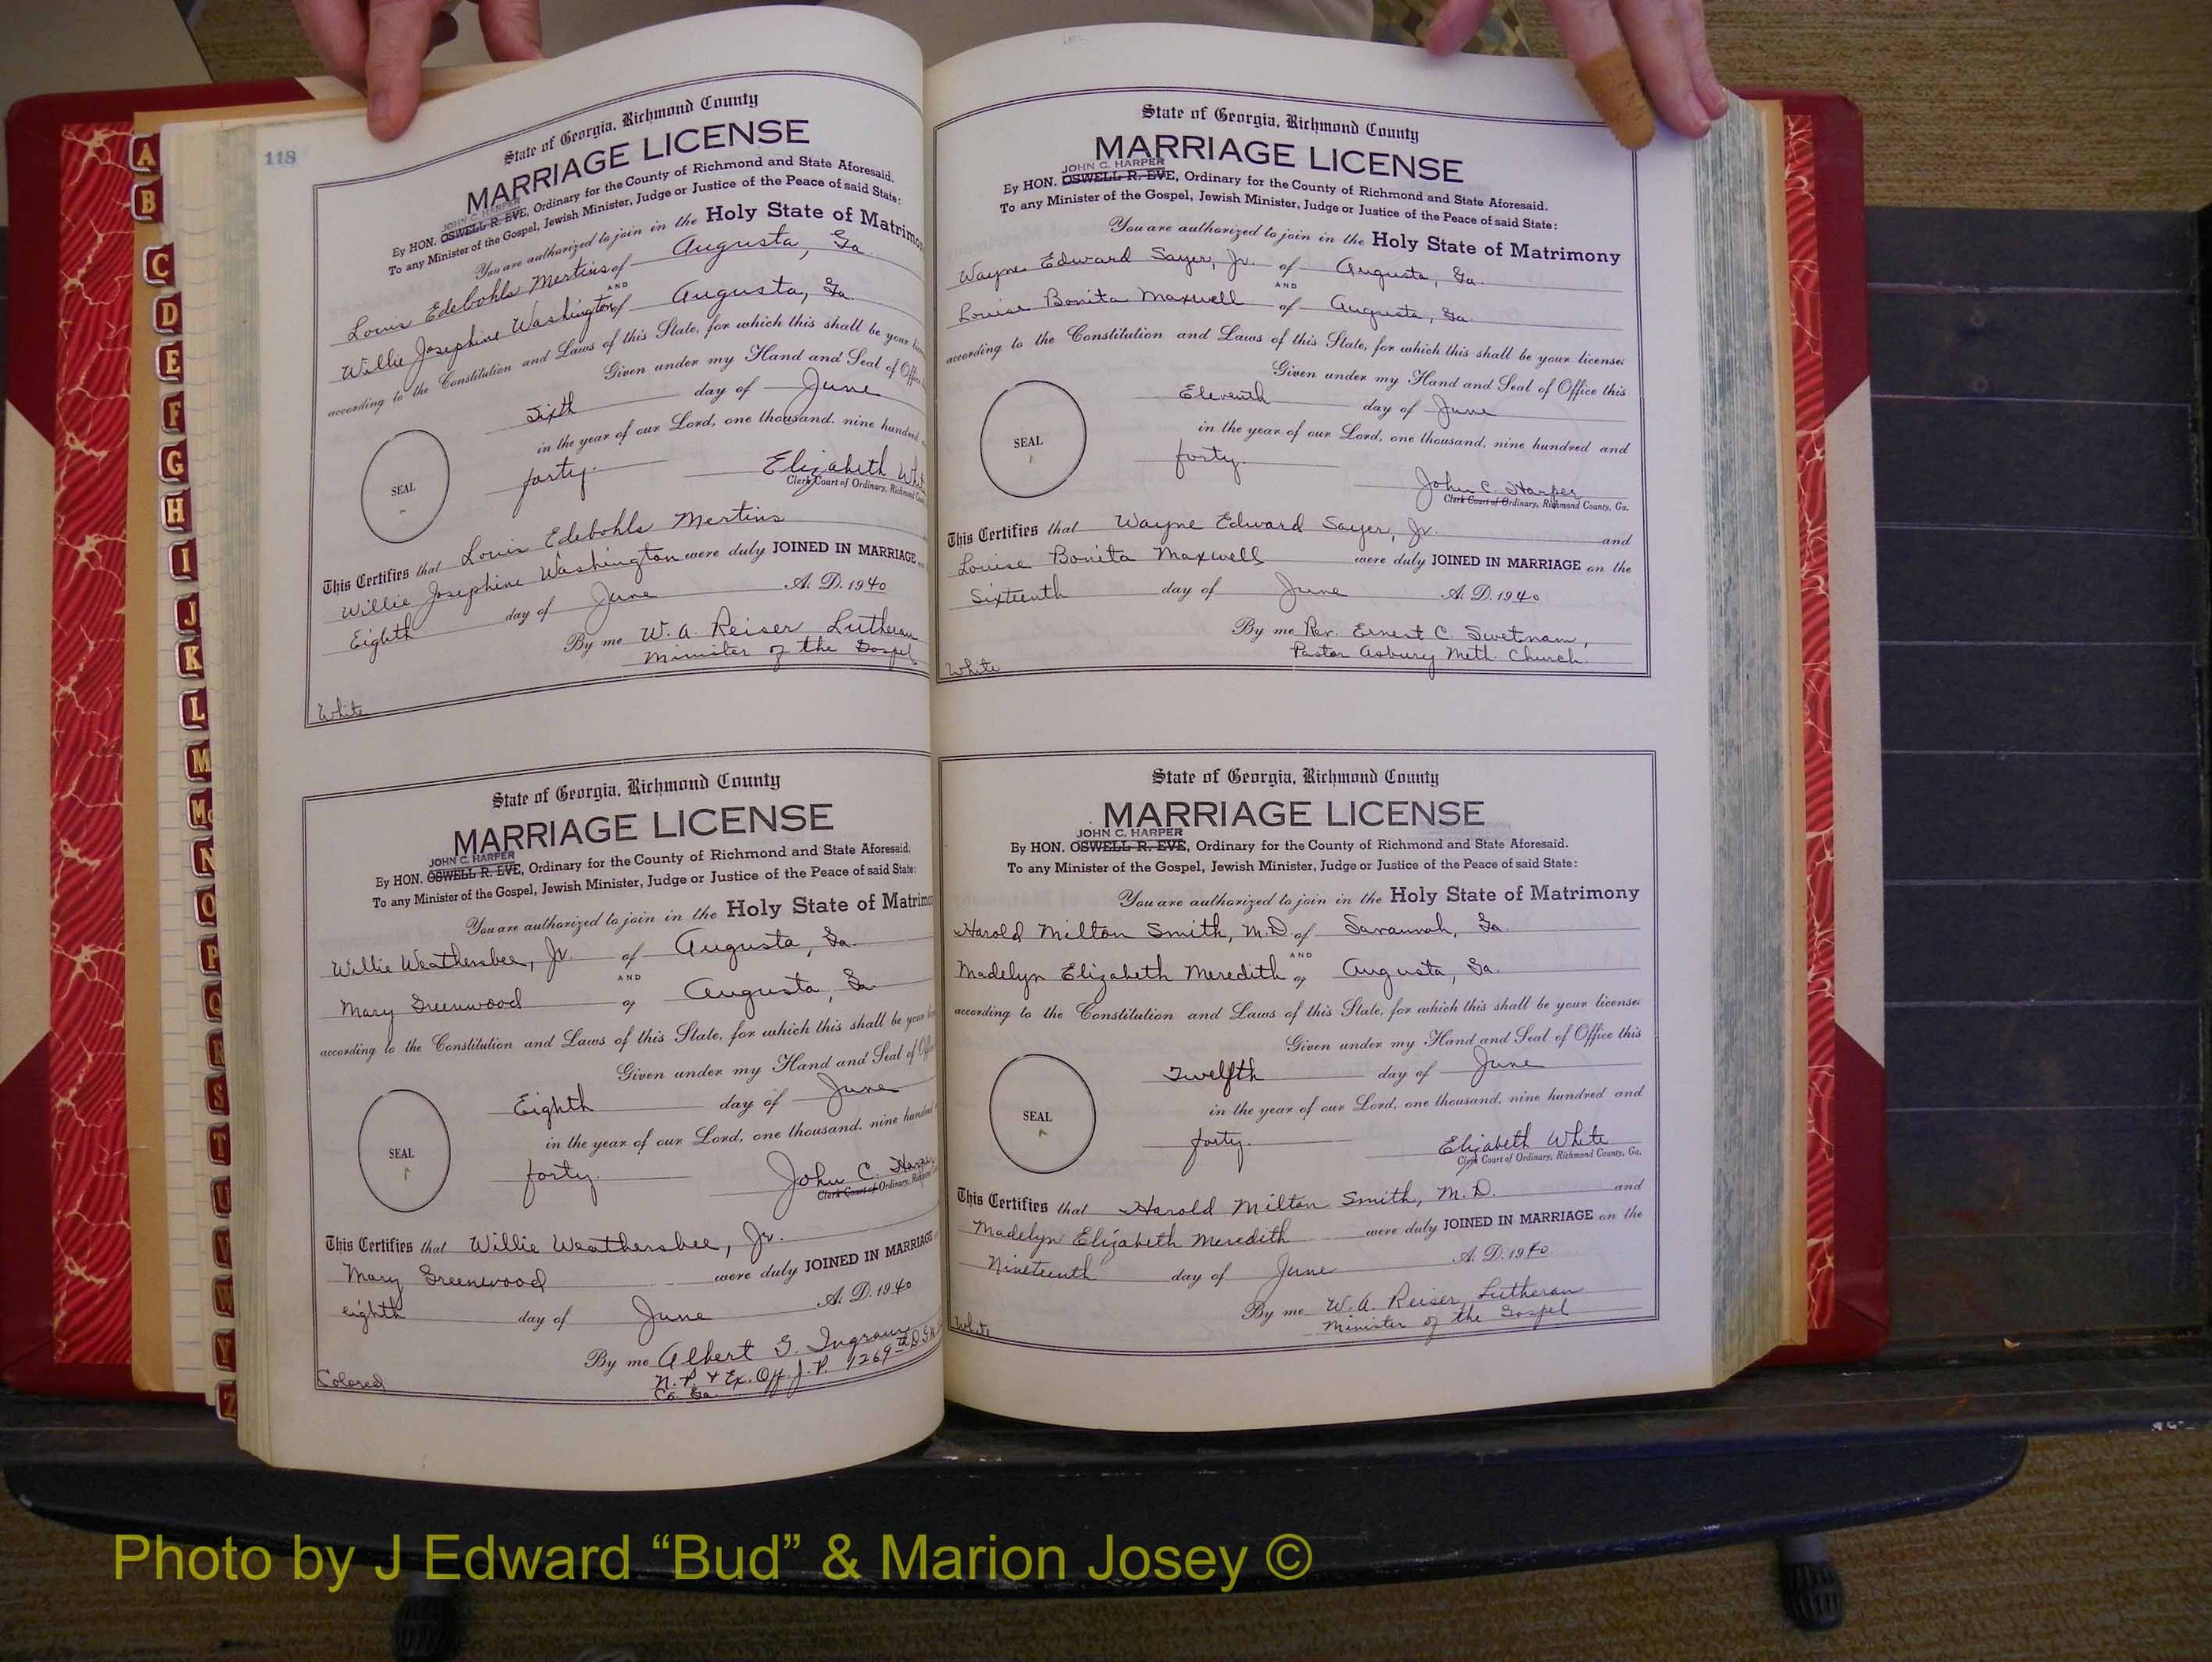 118
State of Georgia, Richmond County
MARRIAGE LICENSE
JOHN C. HARPER
By HON. OSWELL R. EVE, Ordinary for the County of Richmond and State Aforesaid.
To any Minister of the Gospel, Jewish Minister, Judge or Justice of the Peace of said State:
You are authorized to join in the Holy State of Matrimo
Louis Edebohls Mertins of Augusta, Ga.
AND
Willie Josephine Washington of Augusta, Ga.
according to the Constitution and Laws of this State, for which this shall be your
Given under my Hand and Seal of
Sixth day of June
in the year of our Lord, one thousand, nine hundred
forty.
SEAL
Elizabeth
Clerk Court of Ordinary, Richmond
This Certifies that Louis Edebohls Mertins
Willie Josephine Washington were duly JOINED IN MARRIAGE
Eighth day of June A. D. 1940
By me W. A. Reiser Lutheran
Minister of the Gospel
White
State of Georgia, Richmond County
MARRIAGE LICENSE
JOHN C. HARPER
By HON. OSWELL R. EVE, Ordinary for the County of Richmond and State Aforesaid.
To any Minister of the Gospel, Jewish Minister, Judge or Justice of the Peace of said State:
You are authorized to join in the Holy State of Matrimo
Willie Weathersbee, Jr. of Augusta, Ga.
AND
Mary Greenwood of Augusta, Ga.
according to the Constitution and Laws of this State, for which this shall be your
Given under my Hand and Seal of
Eighth day of June
in the year of our Lord, one thousand, nine hundred
forty.
SEAL
John C.
Clerk Court of Ordinary,
This Certifies that Willie Weathersbee, Jr.
Mary Greenwood were duly JOINED IN MARRIAGE
eighth day of June A. D. 1940
By me Albert G.
N. P. & Ex. Off. J. P. 1269
Co. Ga.
Colored
State of Georgia, Richmond County
MARRIAGE LICENSE
JOHN C. HARPER
By HON. OSWELL R. EVE, Ordinary for the County of Richmond and State Aforesaid.
To any Minister of the Gospel, Jewish Minister, Judge or Justice of the Peace of said State:
You are authorized to join in the Holy State of Matrimony
Wayne Edward Sayer, Jr. of Augusta, Ga.
AND
Louise Bonita Maxwell of Augusta, Ga.
according to the Constitution and Laws of this State, for which this shall be your license:
Given under my Hand and Seal of Office this
Eleventh day of June
in the year of our Lord, one thousand, nine hundred and
forty.
SEAL
John C. Harper
Clerk Court of Ordinary, Richmond County, Ga.
This Certifies that Wayne Edward Sayer, Jr. and
Louise Bonita Maxwell were duly JOINED IN MARRIAGE on the
Sixteenth day of June A. D. 1940
By me Rev. Ernest C. Swetnam,
Pastor Asbury Meth. Church.
White
State of Georgia, Richmond County
MARRIAGE LICENSE
JOHN C. HARPER
By HON. OSWELL R. EVE, Ordinary for the County of Richmond and State Aforesaid.
To any Minister of the Gospel, Jewish Minister, Judge or Justice of the Peace of said State:
You are authorized to join in the Holy State of Matrimony
Harold Milton Smith, M.D. of Savannah, Ga.
AND
Madelyn Elizabeth Meredith of Augusta, Ga.
according to the Constitution and Laws of this State, for which this shall be your license:
Given under my Hand and Seal of Office this
Twelfth day of June
in the year of our Lord, one thousand, nine hundred and
forty.
SEAL
Elizabeth White
Clerk Court of Ordinary, Richmond County, Ga.
This Certifies that Harold Milton Smith, M.D. and
Madelyn Elizabeth Meredith were duly JOINED IN MARRIAGE on the
Nineteenth day of June A. D. 1940
By me W. A. Reiser, Lutheran
Minister of the Gospel
White
A
B
C
D
E
F
G
H
I
J
K
L
M
Mc
N
O
P
Q
R
S
T
U
V
W
Y
Z
Photo by J Edward “Bud” & Marion Josey ©